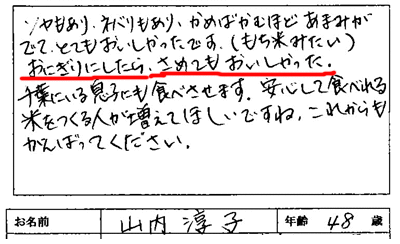 ツヤもあり、ネバリもあり、かめばかむほど あまみが
でて、とてもおいしかったです。(もち米みたい)
おにぎりにしたら、さめても おいしかった。
千葉にいる息子にも食べさせます。安心して食べれる
米をつくる人が増えてほしいですね、これからも
がんばってください。
お名前 山内 淳子 年齢 48 歳